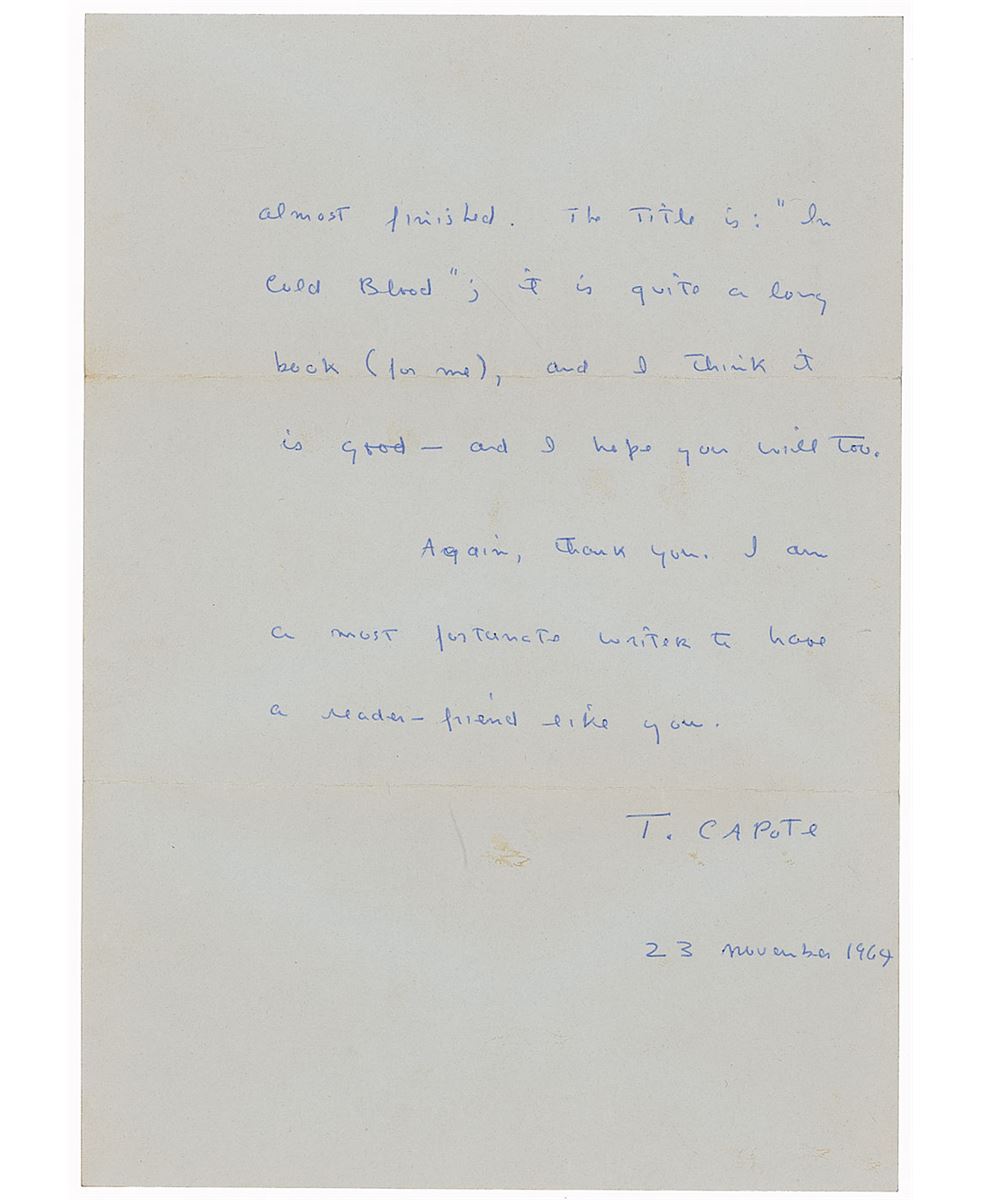 almost finished. The Title is: "In
Cold Blood"; it is quite a long
book (for me), and I think it
is good — and I hope you will Too.
Again, thank you. I am
a most fortunate writer to have
a reader-friend like you.
T. CAPOTE
23 november 1964